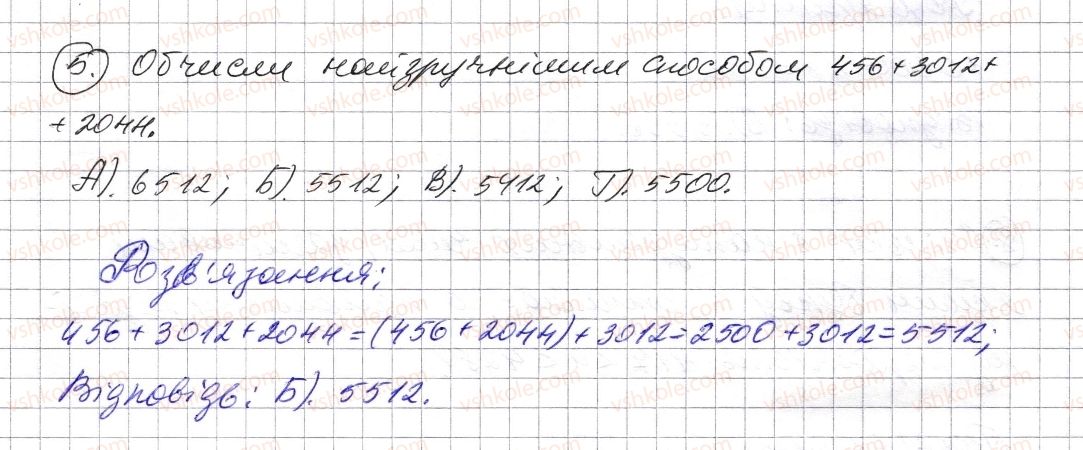 5. Обчисли найзручнішим способом 456+3012+
+2044.
А). 6512; Б). 5512; В). 5412; Г). 5500.
Розв'язання:
456+3012+2044=(456+2044)+3012=2500+3012=5512;
Відповідь: Б). 5512.